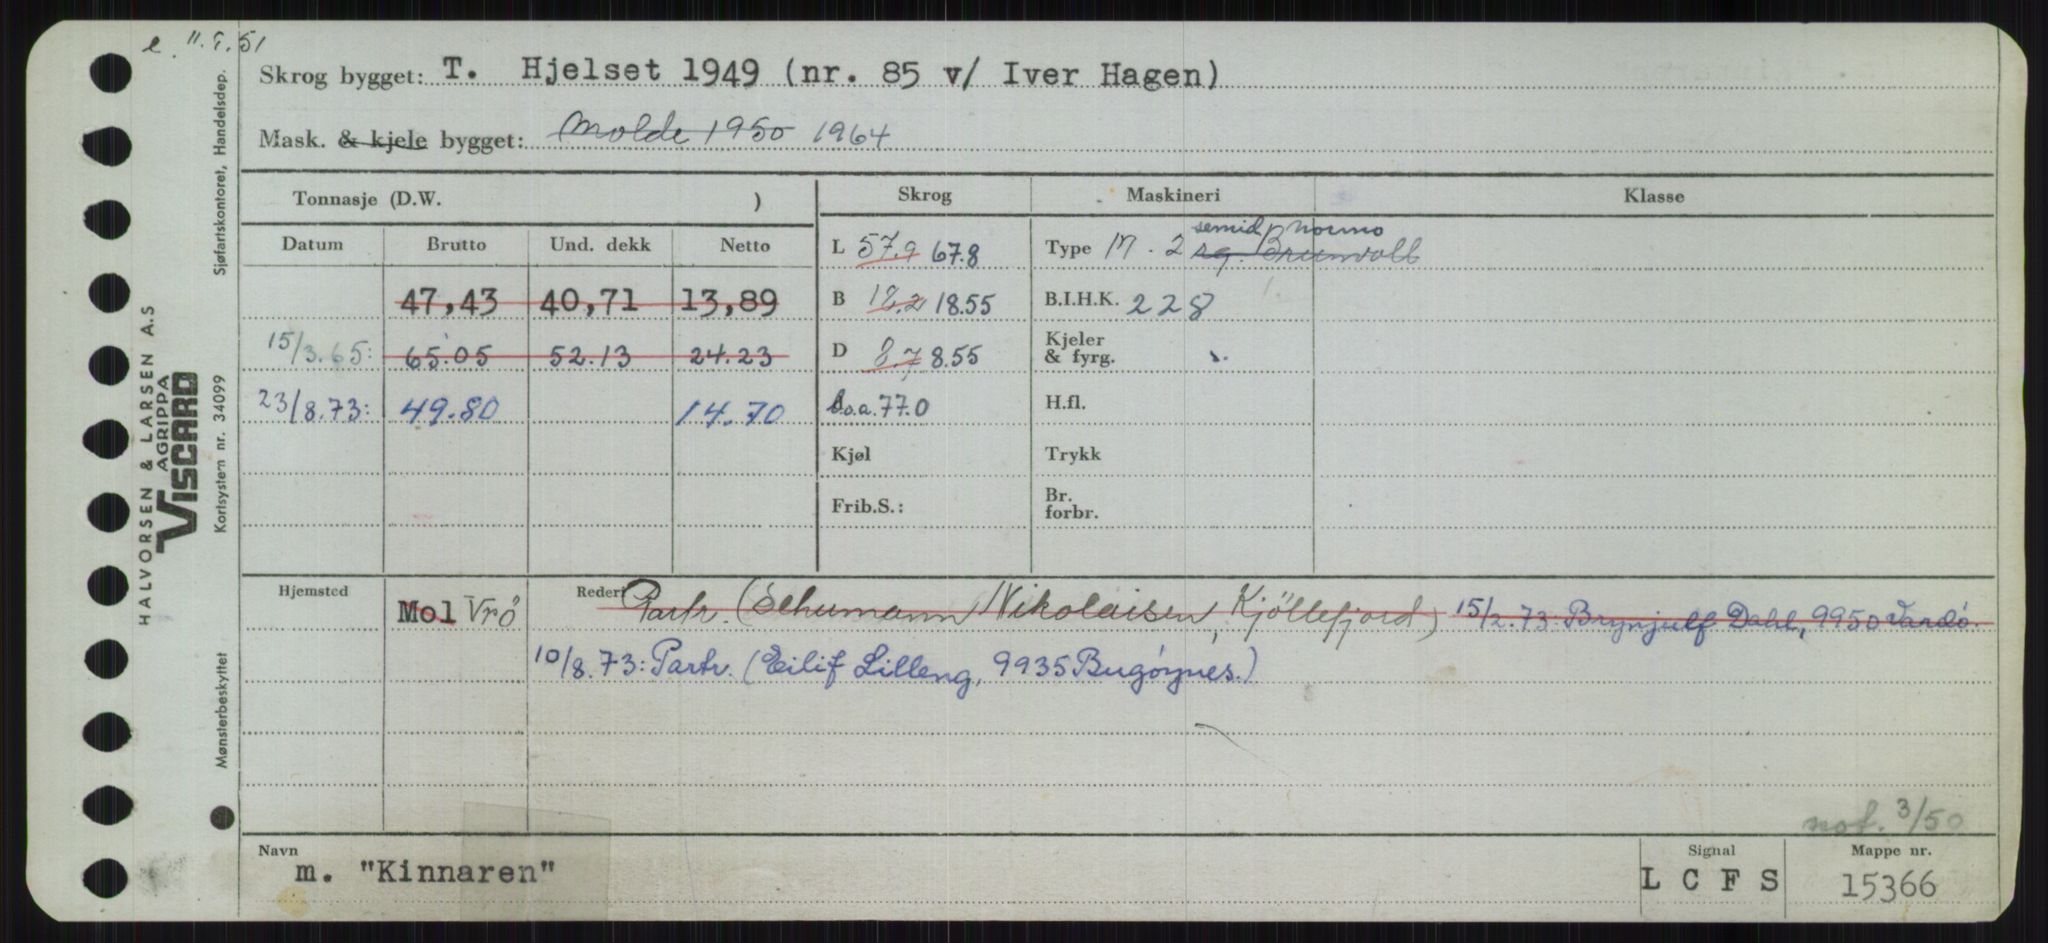 e 11.5.51
Skrog bygget: T. Hjelset 1949 (nr. 85 v/ Iver Hagen)
Mask. & kjele bygget: Molde 1950 1964
Tonnasje (D.W. )
Skrog
Maskineri
Klasse
Datum Brutto Und. dekk Netto
47,43 40,71 13,89
15/3.65: 65.05 52.13 24.23
23/8.73: 49.80 14.70
L 57.9 67.8
B 18.2 18.55
D 8.7 8.55
l.o.a. 77.0
Kjøl
Frib.S.:
semid. Normo
Type M. 2 sg. Brunvoll
B.I.H.K. 228
Kjeler
& fyrg.
H.fl.
Trykk
Br.
forbr.
Hjemsted Mol Vrö
Rederi Partr. (Schumann Nikolaisen, Kjöllefjord) 15/2.73: Brynjulf Dahl, 9950 Vardö.
10/8.73: Partr. (Eilif Lilleng, 9935 Bugöynes.)
not. 3/50
Navn
m. "Kinnaren"
Signal
L C F S
Mappe nr.
15366
HALVORSEN & LARSEN A.S
AGRIPPA
VISCARD
Mønsterbeskyttet Kortsystem nr. 34099 Sjøfartskontoret, Handelsdep.